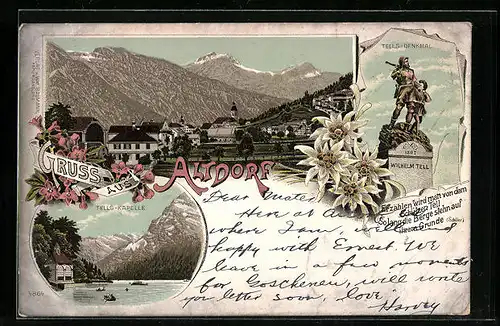 TELLS-DENKMAL
GRUSS
AUS
ALTDORF
1307
WILHELM TELL
Erzählen wird man von dem
Schützen Tell
Solang die Berge stehn auf
ihrem Grunde (Schiller)
TELLS-KAPELLE
Dear Mater,
Here at
where Fam,
happy with Ernest. We
leave in a few moments
for Goschenen, will write
you letter soon, love,
Harvey